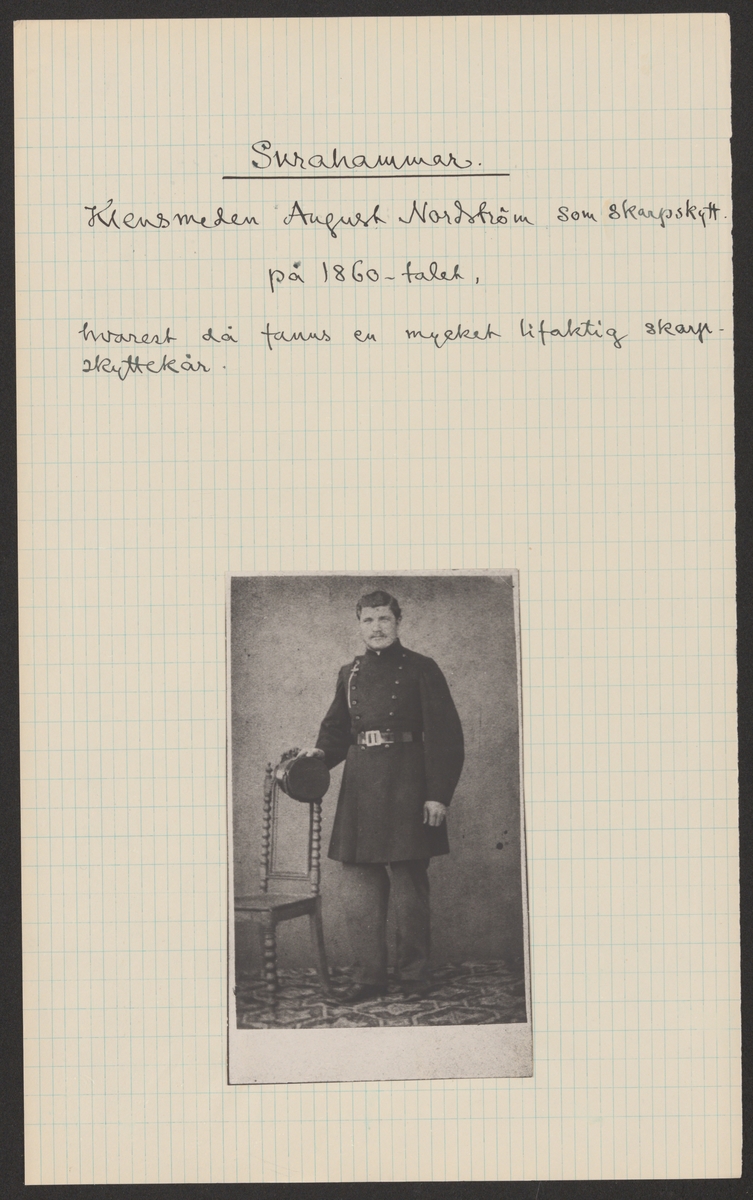 Surahammar.
Klensmeden August Nordström som skarpskytt.
på 1860-talet,
hvarest då fanns en mycket lifaktig skarp-
skyttekår.